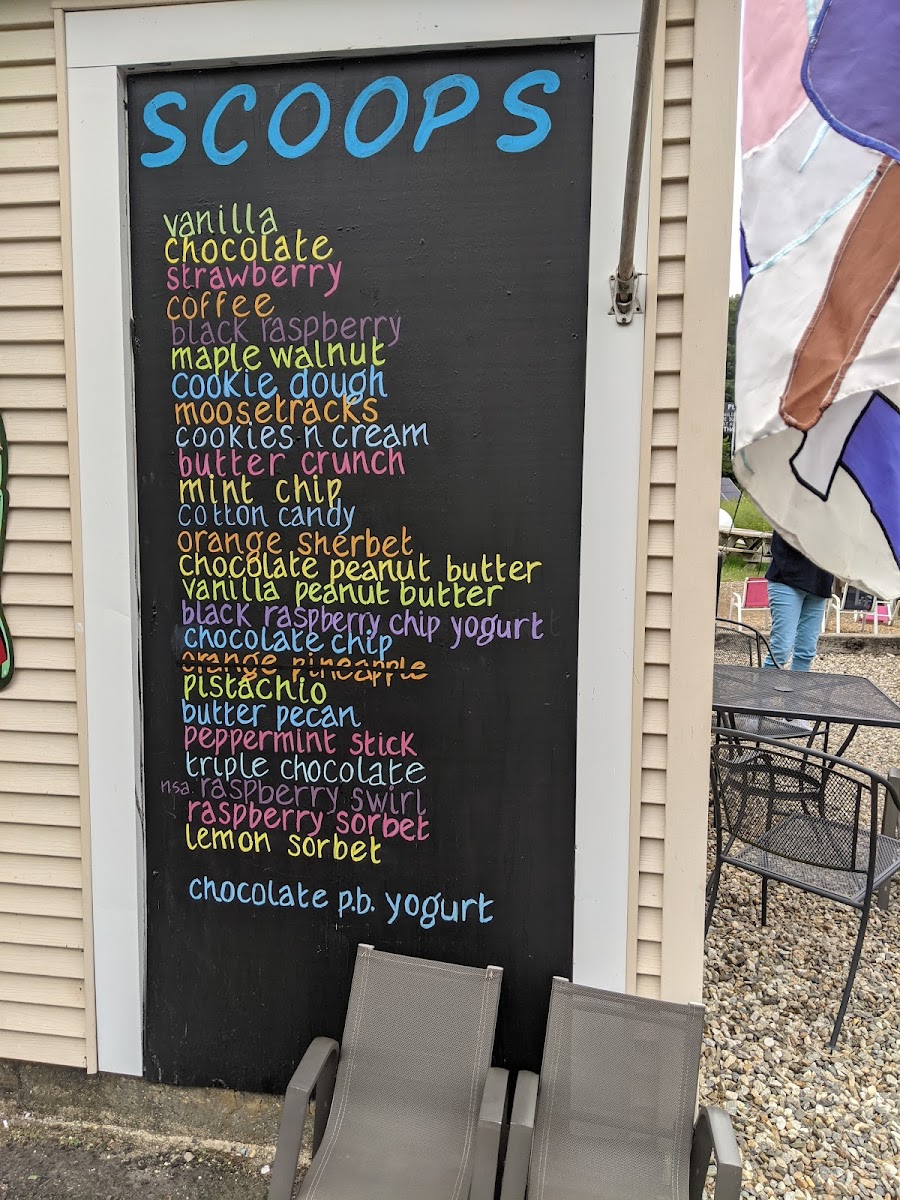 SCOOPS
vanilla
chocolate
strawberry
coffee
black raspberry
maple walnut
cookie dough
moosetracks
cookies n cream
butter crunch
mint chip
cotton candy
orange sherbet
chocolate peanut butter
vanilla peanut butter
black raspberry chip yogurt
chocolate chip
orange pineapple
pistachio
butter pecan
peppermint stick
triple chocolate
nsa. raspberry swirl
raspberry sorbet
lemon sorbet
chocolate p.b. yogurt